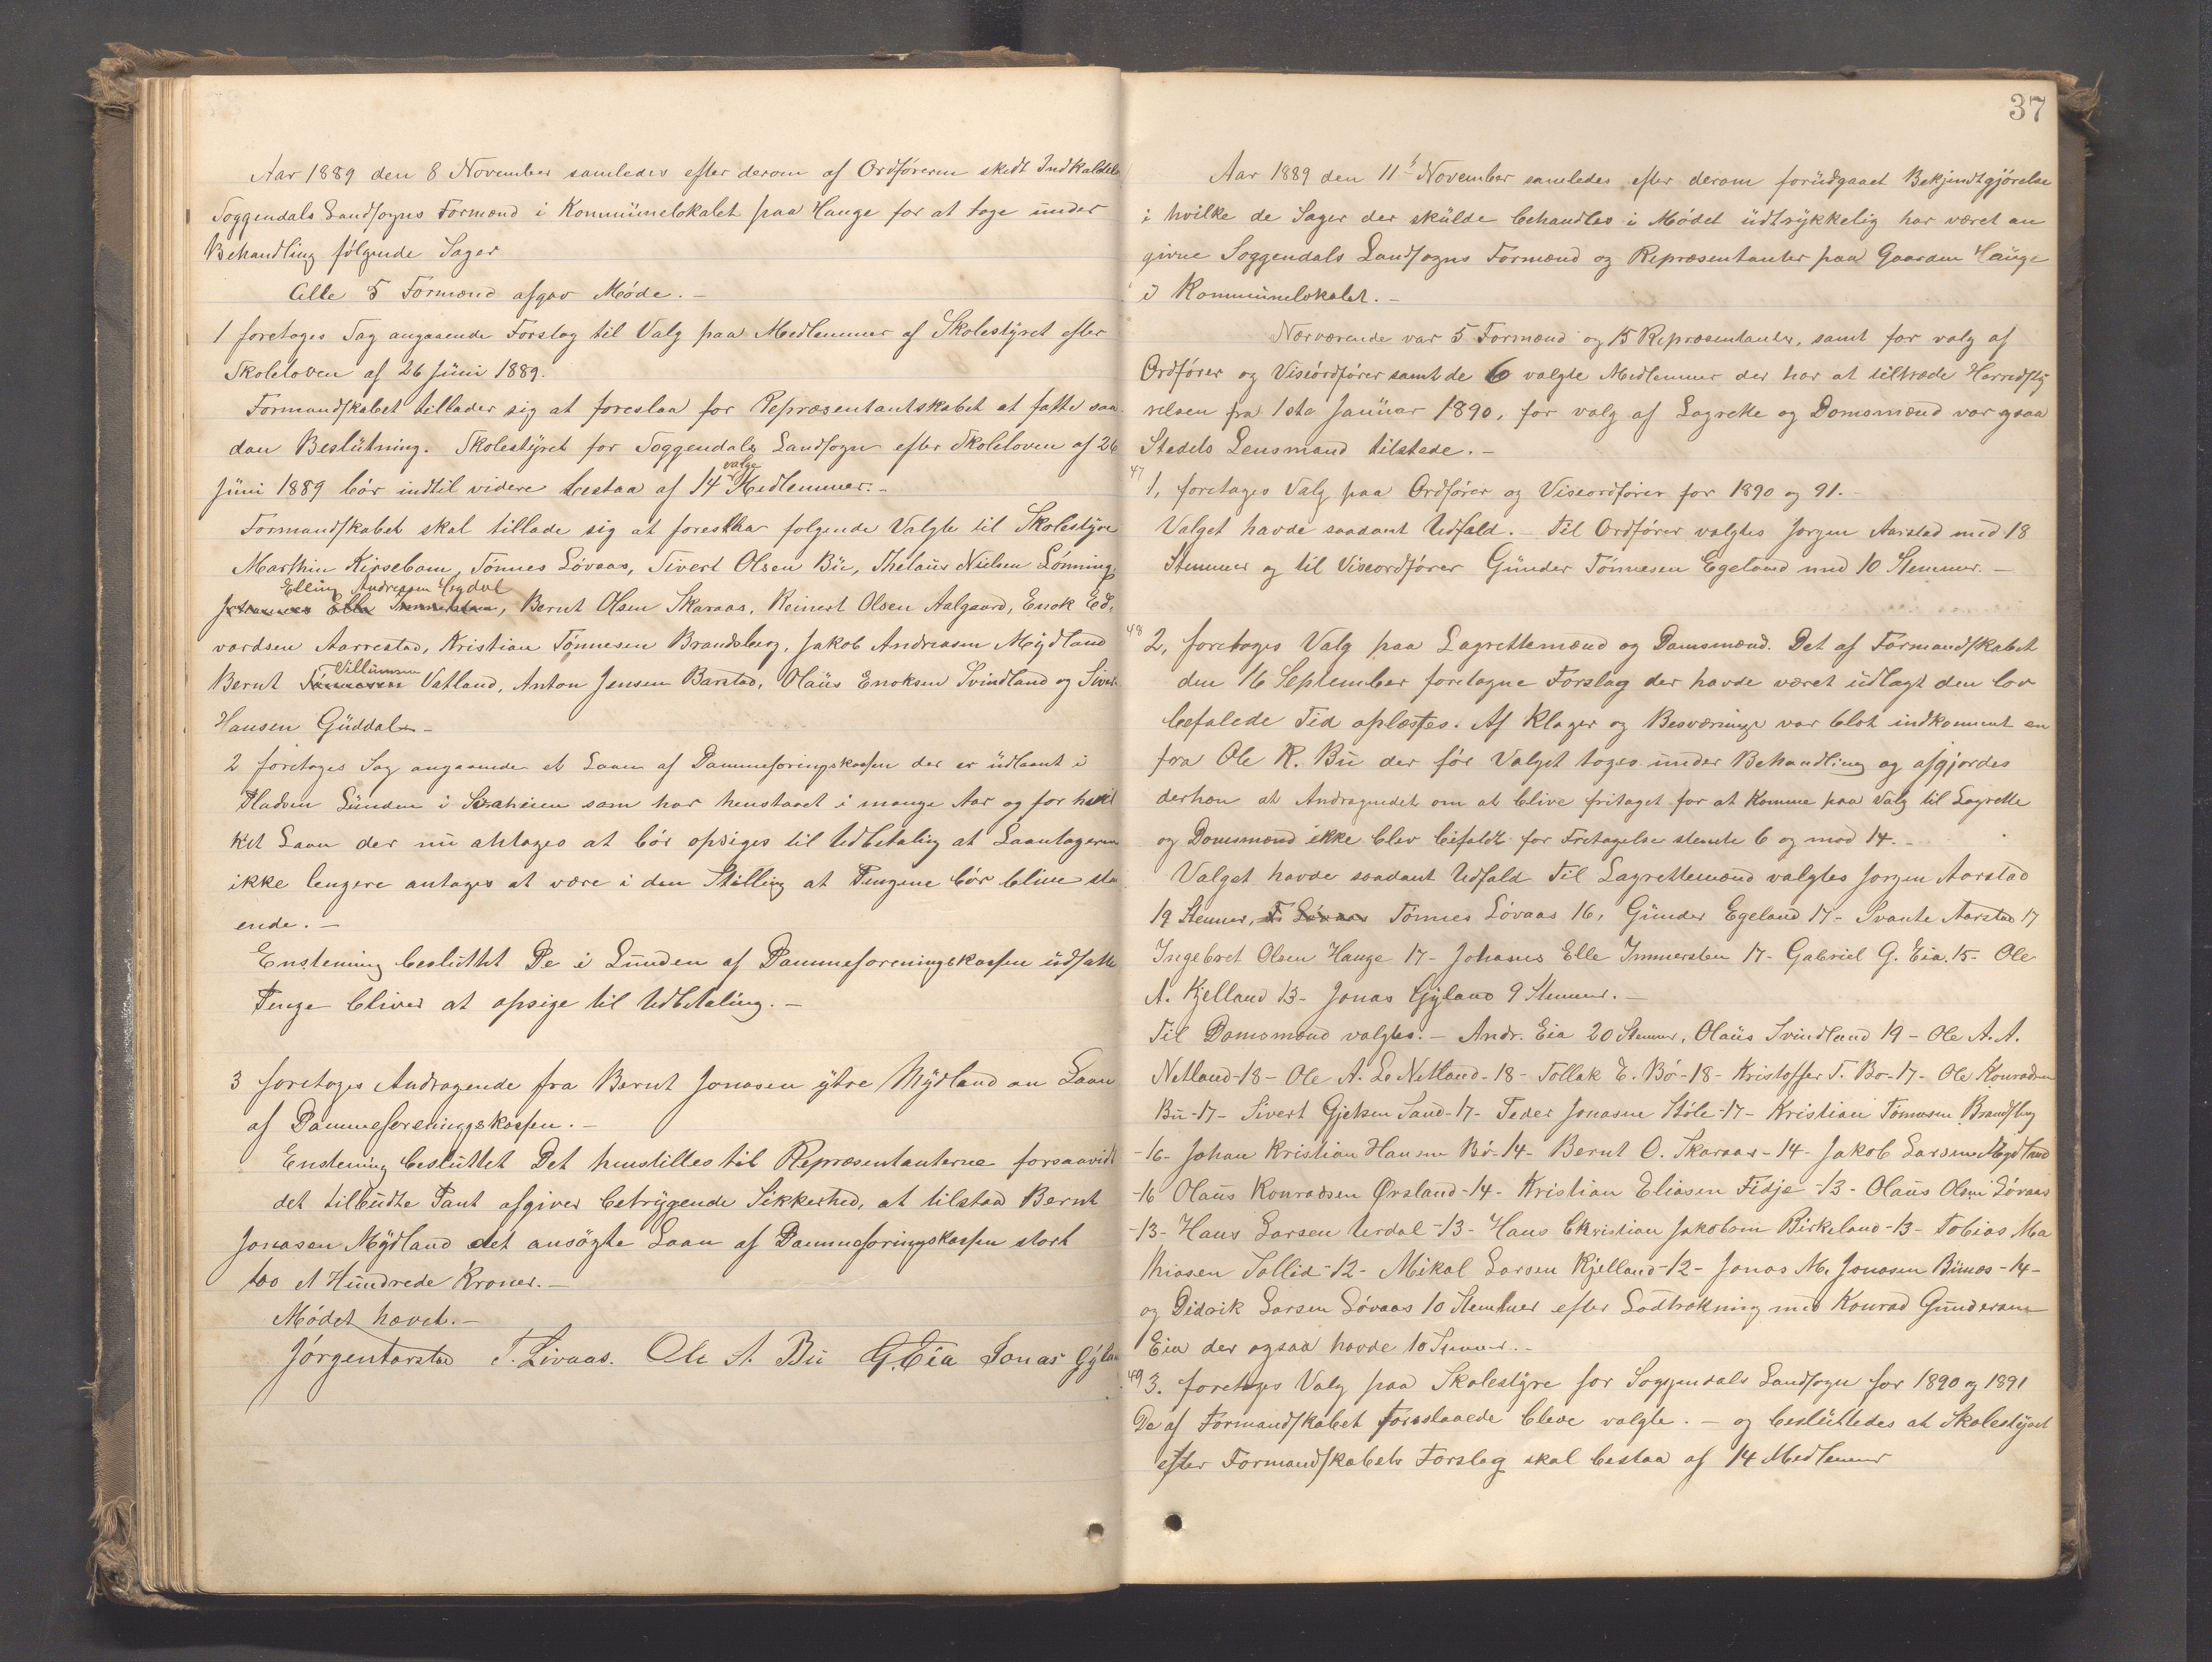 Aar 1889 den 8 November samledes efter derom af Ordføreren skedt Indkaldelse
Soggendals Landsogns Formænd i Kommünelokalet paa Hauge for at tage under
Behandling følgende Sager
Alle 5 Formænd afgav Møde. -
1 foretoges Sag angaaende Forslag til Valg paa Medlemmer af Skolestyret efter
Skoleloven af 26 Jüni 1889.
Formandskabet tillader sig at foreslaa for Repræsentantskabet at fatte saa
dan Beslütning. Skolestyret for Soggendals Landsogn efter Skoleloven af 26
valge
Jüni 1889 bør indtil videre bestaa af 14 Medlemmer. -
Formandskabet skal tillade sig at foreslaa følgende Valgte til Skolestyre
Marthin Kirsebom, Tønnes Løvaas, Sivert Olsen Bü, Thelaüs Nielsen Lønning,
Elling Andreasen Mydal
Johannes Elle Immerstein, Bernt Olsen Skaraas, Reinert Olsen Aalgaard, Enok Ed,
vardsen Aarrestad, Kristian Tønnesen Brandsberg, Jakob Andreasen Mydland
Villümsen
Bernt Tønnesen Vatland, Anton Jensen Barstad, Olaüs Enoksen Svindland og Sivert
Hansen Güddal -
2 foretoges Sag angaaende et Laan af Dammeforingskassen der er üdlaant i
Pladsen Lünden i som har henstaaet i mange Aar og for hvil
ket Laan der nü antages at bør opsiges til Udbetaling at Laantageren
ikke lengere antages at være i den Stilling at Pengene bør blive sta
ende. -
Enstemig beslüttet De i Lünden af Dammeforeningskassen üdsatte
Penge bliver at opsige til Udbetaling. -
3 foretoges Andragende fra Bernt Jonasen ytre Mydland on Laan
af Dammeforeningskassen. -
Enstemig beslüttet Det henstilles til Repræsentanterne forsaavidt
det tilbüdte Pant afgiver betryggende Sikkerhed, at tilstaa Bernt
Jonasen Mydland det ansøgte Laan af Dammeforingskassen stort
100 et Hündrede Kroner. -
Mødet hævet. -
Jørgen Aarstad T. Løvaas. Ole A. Bü G. Eia Jonas Gyland
37
Aar 1889 den 11te November samledes efter derom forüdgaaet Bekjendtgjørelse
i hvilke de Sager der skülde behandles i Mødet üdtrykkelig har været an
givne Soggendals Landsogns Formænd og Repræsentanter paa Gaarden Haüge
i Kommünelokalet. -
Nærværende var 5 Formænd og 15 Repræsentanter, samt for valg af
Ordfører og Viseordfører samt de 6 valgte Medlemmer der har at tiltræde Herredsty
relsen fra 1ste Janüar 1890, for valg af Lagrette og Domsmænd var ogsaa
Stedets Lensmand tilstede. -
47
1, foretoges Valg paa Ordfører og Viseordfører for 1890 og 91. -
Valget havde saadant Udfald. - Til Ordfører valgtes Jørgen Aarstad med 18
Stemmer og til Viseordfører Günder Tønnesen Egeland med 10 Stemmer. -
48
2, foretoges Valg paa Lagrettemænd og Domsmænd. Det af Formandskabet
den 16 September foretagne Forslag der havde været üdlagt den lov
befalede Tid oplæstes. Af Klager og Besværinge var blot indkommet en
fra Ole R. Bü der før Valget toges ünder Behandling og afgjordes
derhen at Andragendet om at blive fritaget for at Komme paa Valg til Lagrette
og Domsmænd ikke blev bifaldt for Fritagelse stemte 6 og mod 14. -
Valget havde saadant Udfald Til Lagrettemænd valgtes Jørgen Aarstad
19 Stemmer, T. Løvaas Tønnes Løvaas 16, Günder Egeland 17- Svante Aarstad 17
Ingebret Olsen Hauge 17- Johanes Elle Immerstein 17- Gabriel G. Eia. 15- Ole
A. Kjelland 13- Jonas Gyland 9 Stemmer. -
Til Domsmænd valgtes. - Andr. Eia 20 Stemmer, Olaüs Svindland 19 - Ole A. A.
Netland-18- Ole A. L. Netland-18- Tollak E. Bø-18- Kristoffer T. Bø-17- Ole Konradsen
Bü-17- Sivert Gjetsen Sand-17- Peder Jonasen Støle-17- Kristian Tønnesen Brandsberg
-16- Johan Kristian Hansen Bø-14- Bernt O. Skaraas-14- Jakob Larsen Mydland
-16 Olaüs Konradsen Ørsland-14- Kristian Eliasen Fidje-13- Olaüs Olsen Løvaas
-13- Hans Larsen Urdal-13- Hans Christian Jakobsen Birkeland-13- Tobias Ma
thiasen Sollid-12- Mikal Larsen Kjelland-12- Jonas M. Jonasen Bünes-14-
og Didrik Larsen Løvaas 10 Stemmer efter Lodtrækning med Konrad Gündersen
Eia der ogsaa havde 10 Stemmer. -
49
3. foretoges Valg paa Skolestyre for Soggendals Landsogn for 1890 og 1891
De af Formandskabet Foreslaaede bleve valgte. - og beslüttedes at Skolestyret
efter Formandskabets Forslag skal bestaa af 14 Medlemmer